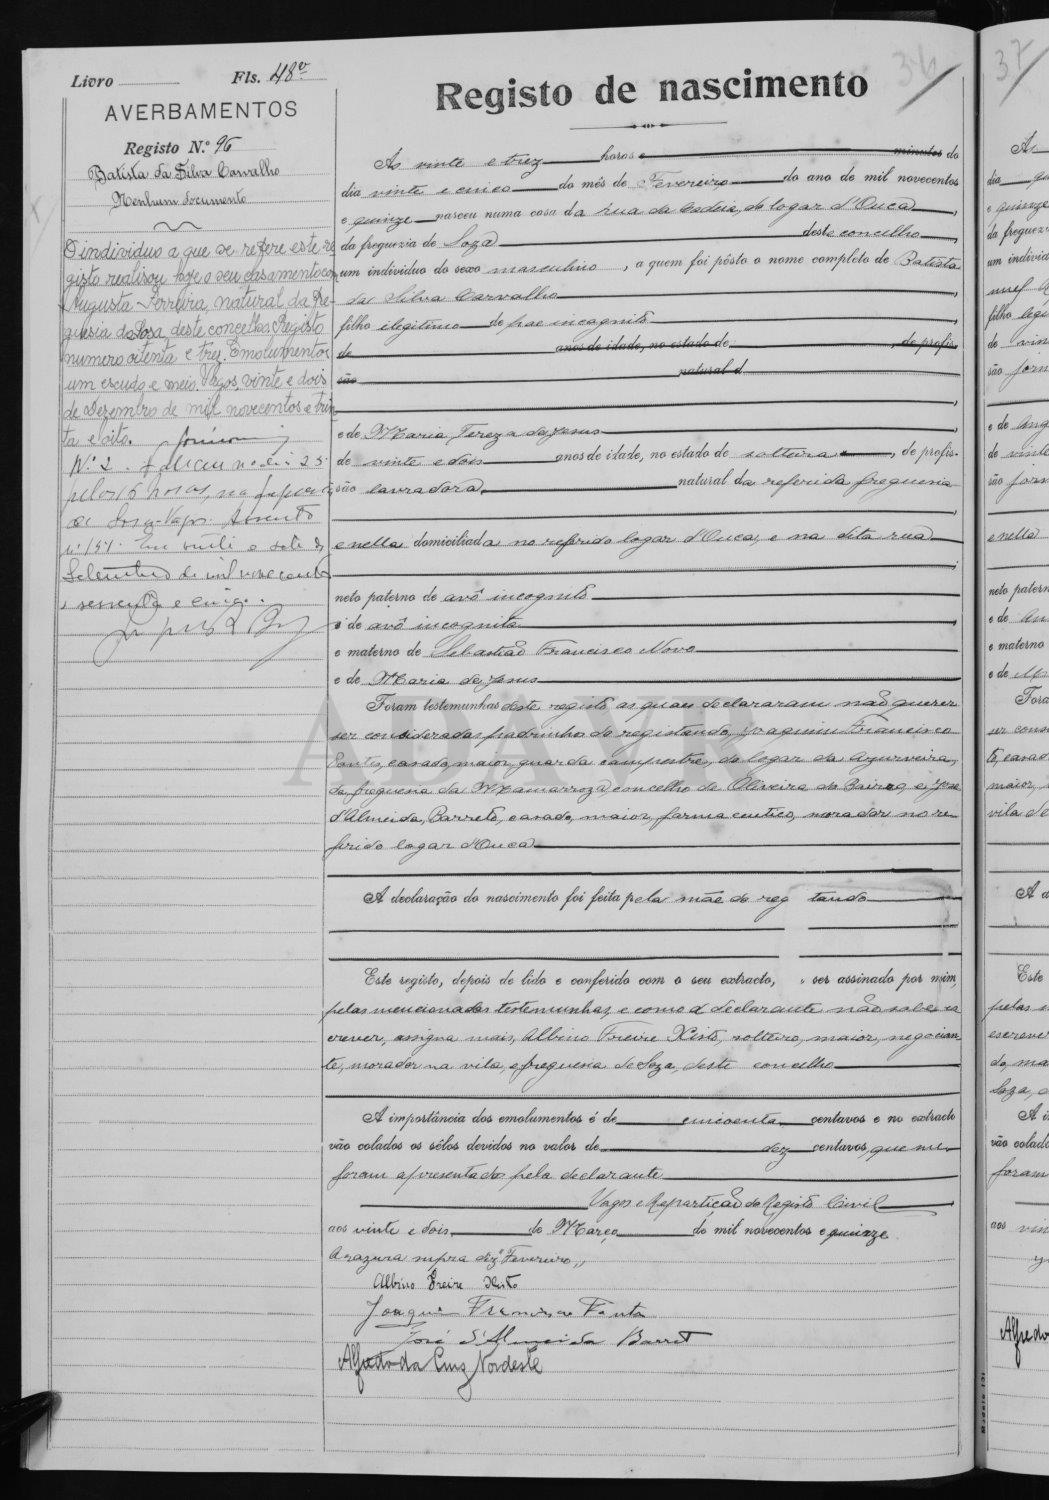 Livro Fls. 48v
AVERBAMENTOS
Registo N.º 96
Batista da Silva Carvalho
Nenhum documento
O individuo a que se refere este re
gisto realisou hoje o seu casamento com
Augusta Ferreira, natural da fre-
guesia de Sosa, deste concelho. Registo
numero oitenta e trez. Emolumentos
um escudo e meio. Vagos, vinte e dois
de Dezembro de mil novecentos e trin
ta e oito.
Nº 2. Faleceu no dia 25
pelas 16 horas, na freguesia
de Sosa-Vagos. Assento
nº 151. Em vinte e sete de
Setembro de mil novecentos
e sessenta e cinco.
Registo de nascimento
36
Ás vinte e trez horas e minutos do
dia vinte e cinco do mês de Fevereiro do ano de mil novecentos
e quinze nasceu numa casa da rua da Cadeia, do logar d'Ouca,
da freguezia de Soza deste concelho,
um individuo do sexo masculino, a quem foi pôsto o nome completo de Batista
da Silva Carvalho,
filho ilegitimo de pae incognito,
de anos de idade, no estado de , de profis-
são natural d
e de Maria Tereza de Jesus
de vinte e dois anos de idade, no estado de solteira, de profis-
são lavradora, natural da referida freguesia
e nella domiciliada no referido logar d'Ouca, e na dita rua
neto paterno de avô incognito
e de avó incognita
e materno de Sebastião Francisco Novo
e de Maria de Jesus
Foram testemunhas deste registo as quaes declararam não querer
ser consideradas padrinhos do registando, Joaquim Francisco
casado, maior, guarda campestre, do logar da Azurveira,
da freguesia da Mamarroza, concelho de Oliveira do Bairro, e José
d'Almeida Barreto, casado, maior, farmaceutico, morador no re-
ferido logar d'Ouca
A declaração do nascimento foi feita pela mãe do reg tando
Este registo, depois de lido e conferido com o seu extracto, ser assinado por mim,
pelas mencionadas testemunhas, e como a declarante não sabe es
crever, assigna mais, Albino Freire Xisto, solteiro, maior, negocian-
te, morador na vila, e freguesia de Soza, deste concelho
A importância dos emolumentos é de cincoenta centavos e no extracto
vão colados os sêlos devidos no valor de dez centavos, que me
foram apresentados pela declarante
Vagos e Repartição do Registo Civil
aos vinte e dois de Março de mil novecentos e quinze.
A razura supra diz: Fevereiro,,
Albino Freire Xisto
Joaquim Francisco
José d'Almeida Barreto
Alfredo da Cruz Nordeste
ADAVR
37